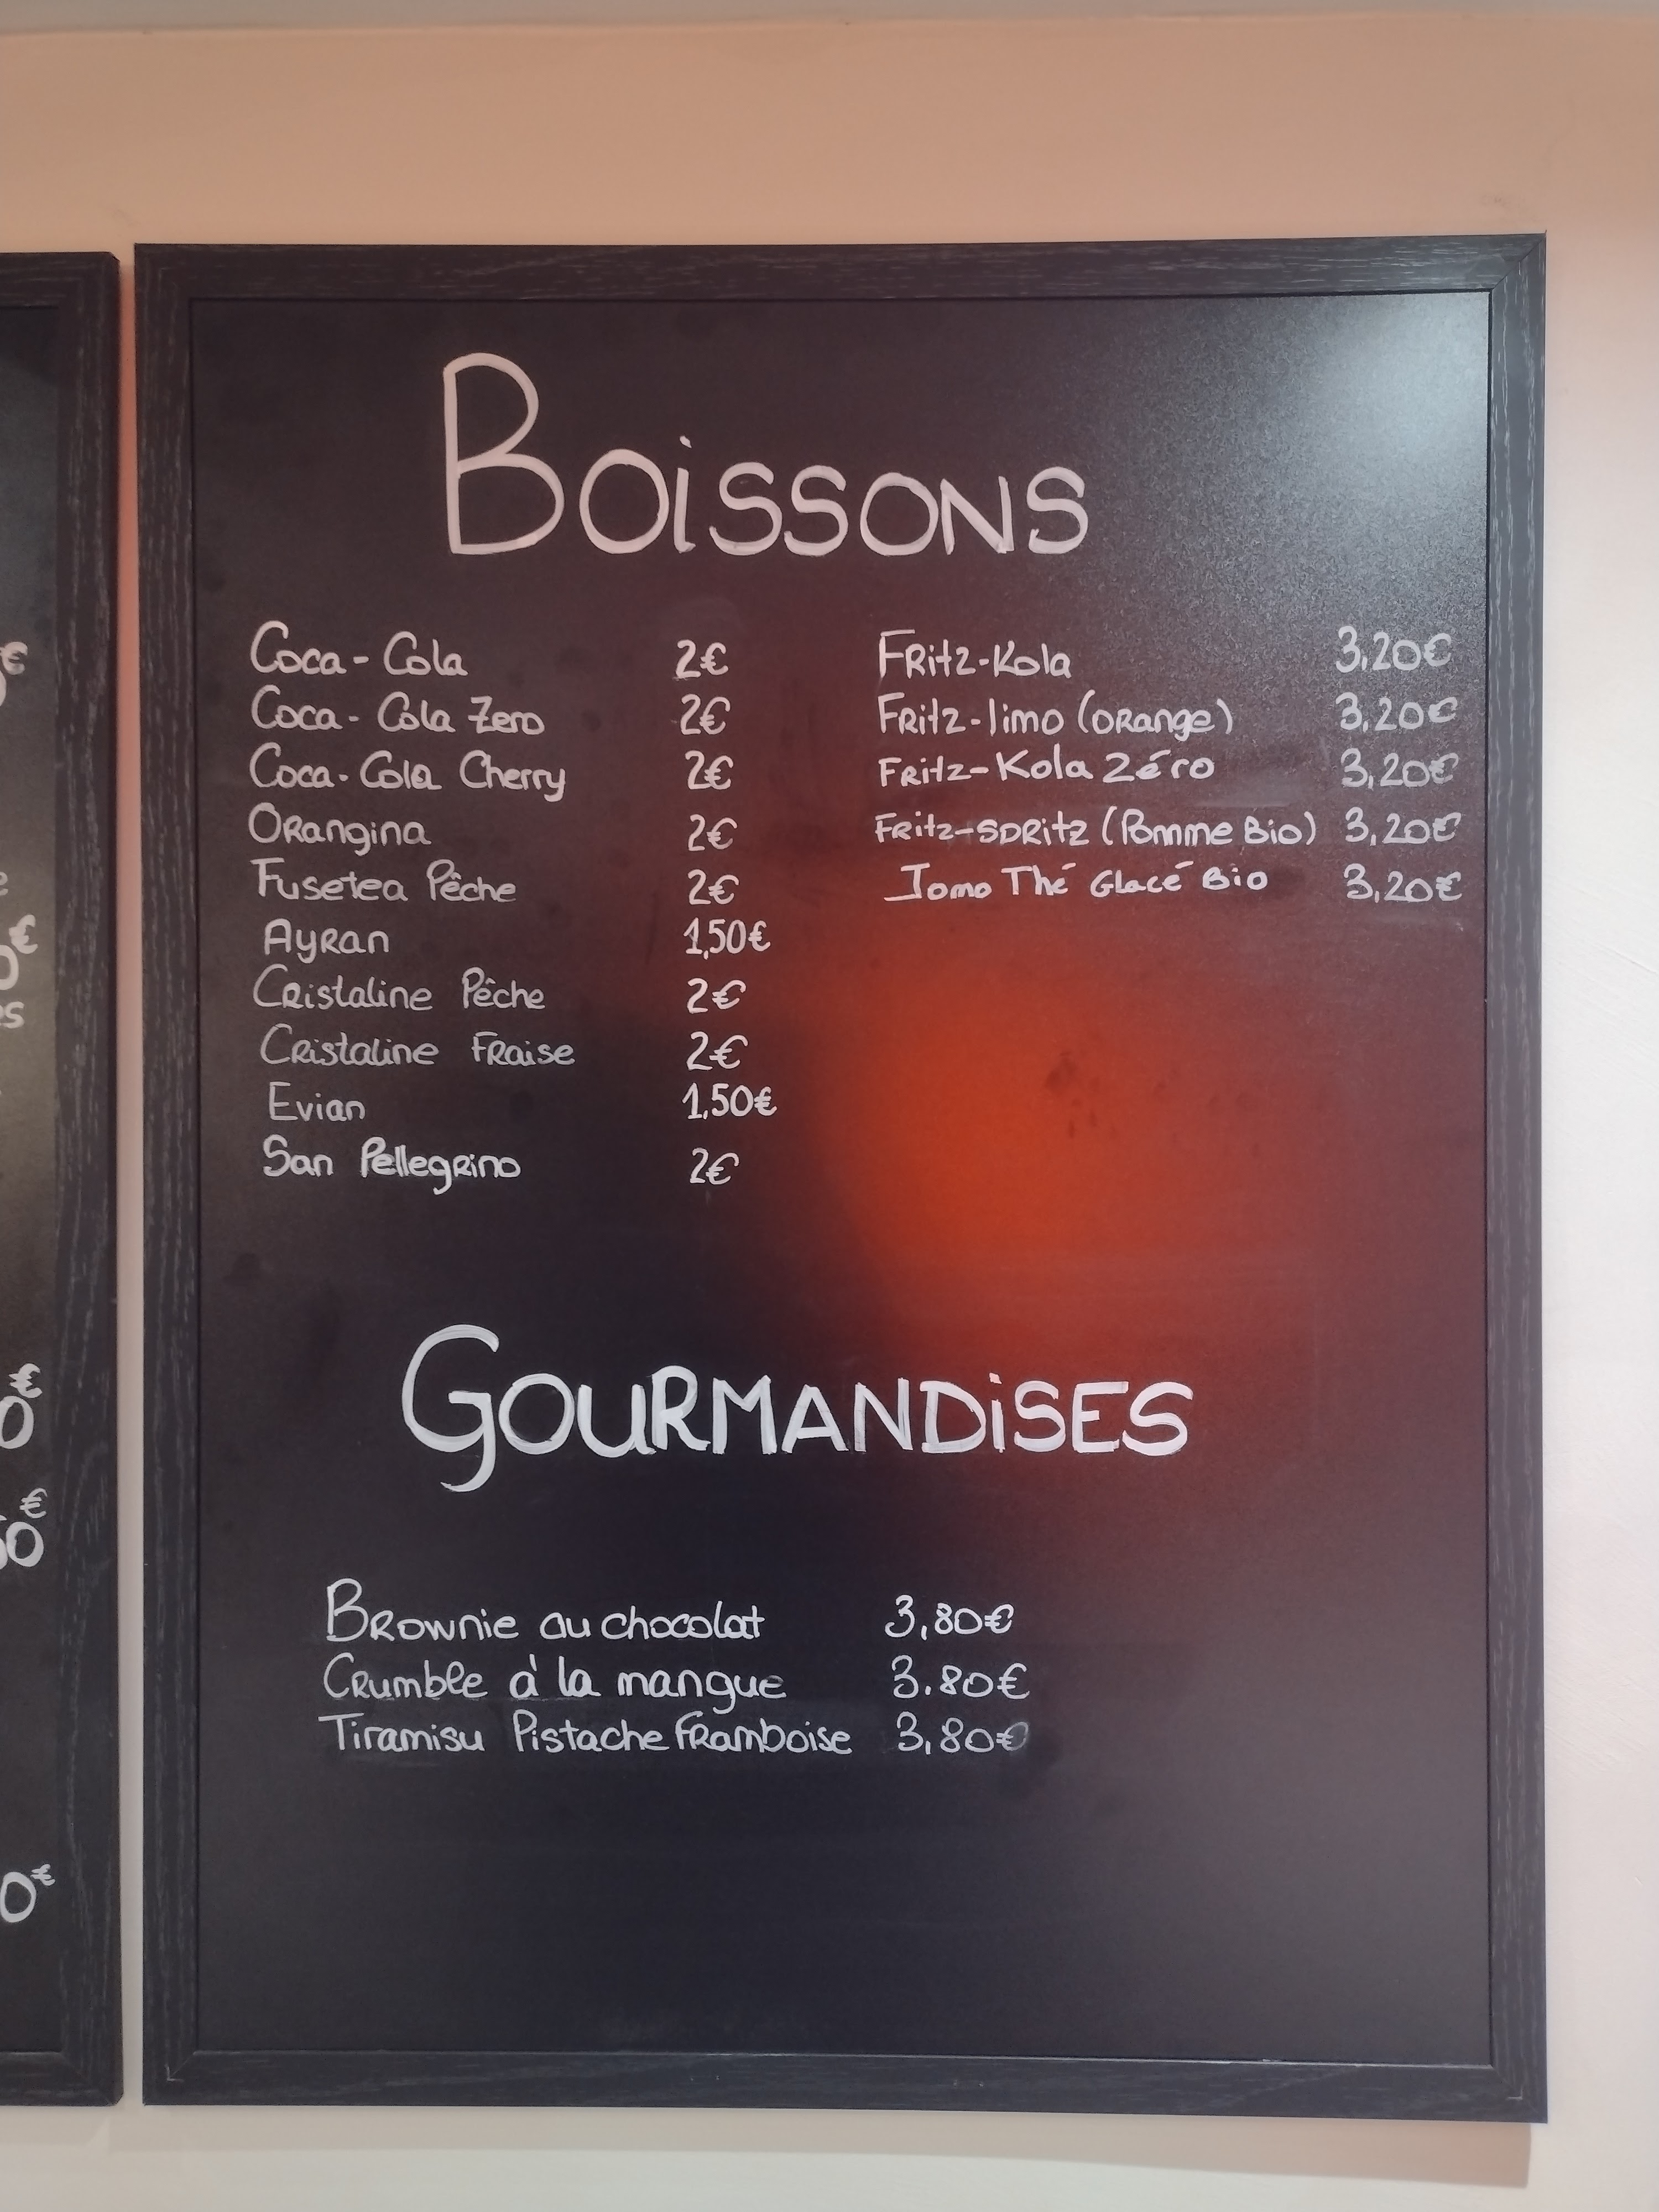 BOISSONS
Coca-Cola 2€
Coca-Cola Zero 2€
Coca-Cola Cherry 2€
Orangina 2€
Fusetea Pêche 2€
Ayran 1,50€
Cristaline Pêche 2€
Cristaline Fraise 2€
Evian 1,50€
San Pellegrino 2€
Fritz-Kola 3,20€
Fritz-limo (orange) 3,20€
Fritz-Kola Zéro 3,20€
Fritz-spritz (Pomme Bio) 3,20€
Jomo Thé Glacé Bio 3,20€
GOURMANDISES
Brownie au chocolat 3,80€
Crumble à la mangue 3.80€
Tiramisu Pistache Framboise 3,80€